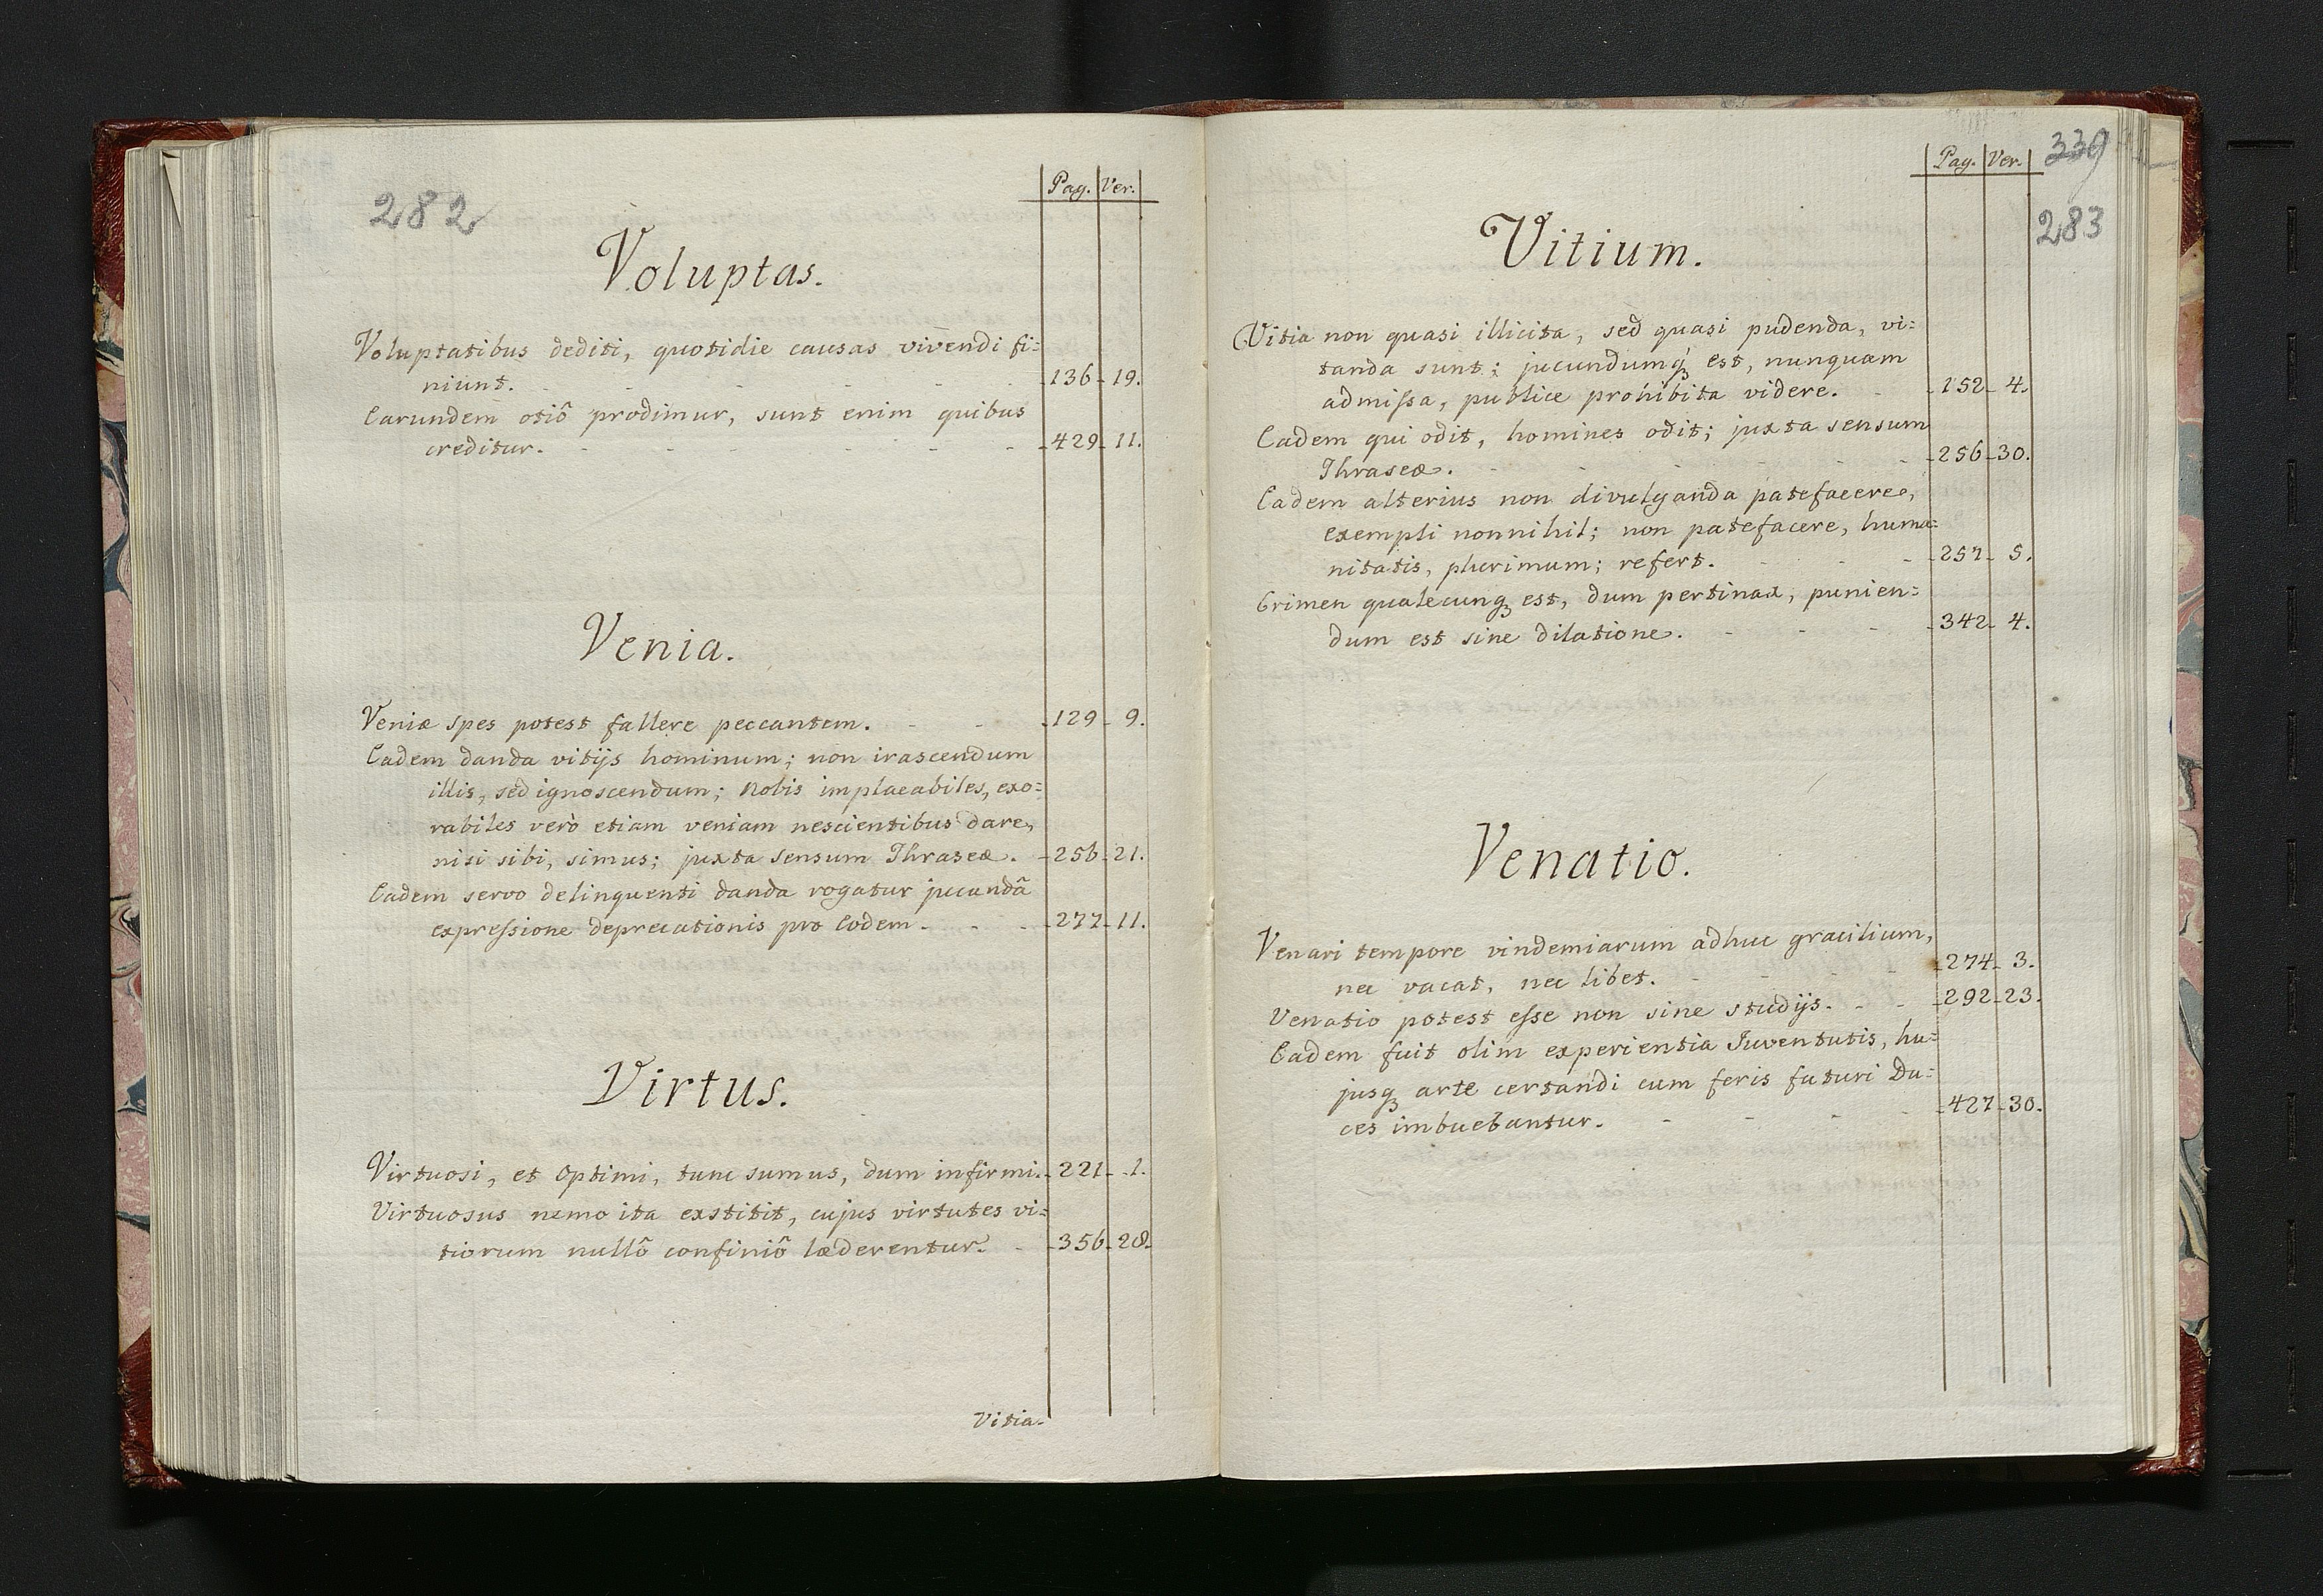 282
Pag. Ver.
Voluptas.
Voluptatibus dediti, quotidie causas vivendi fi=
niunt. - - - - - 136 - 19.
Earundem otiô prodimur, sunt enim quibus
creditur. - - - - - - 429 - 11.
Venia.
Veniæ spes potest fallere peccantem. - - 129 - 9.
Eadem danda vitijs hominum; non irascendum
illis, sed ignoscendum; Nobis implacabiles, exo=
rabiles verò etiam veniam nescientibus dare,
nisi sibi, simus; juxta sensum Thraseæ. - 256 - 21.
Eadem servo delinquenti danda rogatur jucundâ
expreſsione deprecationis pro Eodem. - - - 277 - 11.
Virtus.
Virtuosi, et Optimi, tunc sumus, dum infirmi. - 221 - 1.
Virtuosus nemo ita exstitit, cujus virtutes vi=
tiorum nullô confiniô læderentur. - - 356 - 28.
Vitia-
Pag. Ver. 339
283
Vitium.
Vitia non quasi illicita, sed quasi pudenda, vi=
tanda sunt; jucundumq́ꝫ est, nunquam
admiſsa, publice prohibita videre. - - 152 - 4.
Eadem qui odit, homines odit; juxta sensum
Thraseæ. - - - - - 256 - 30.
Eadem alterius non divulganda patefacere,
exempli nonnihil; non patefacere, huma=
nitatis, plurimum; refert. - - - 257 - 5.
Crimen qualecunqꝫ est, dum pertinax, punien=
dum est sine dilatione. - - - - 342 - 4.
Venatio.
Venari tempore vindemiarum adhuc gracilium,
nec vacat, nec libet. - - - - 274 - 3.
Venatio potest eſse non sine studijs. - - - 292 - 23.
Eadem fuit olim experientia Juventutis, hu=
jusqꝫ arte certandi cum feris futuri Du=
ces imbuebantur. - - - - 427 - 30.